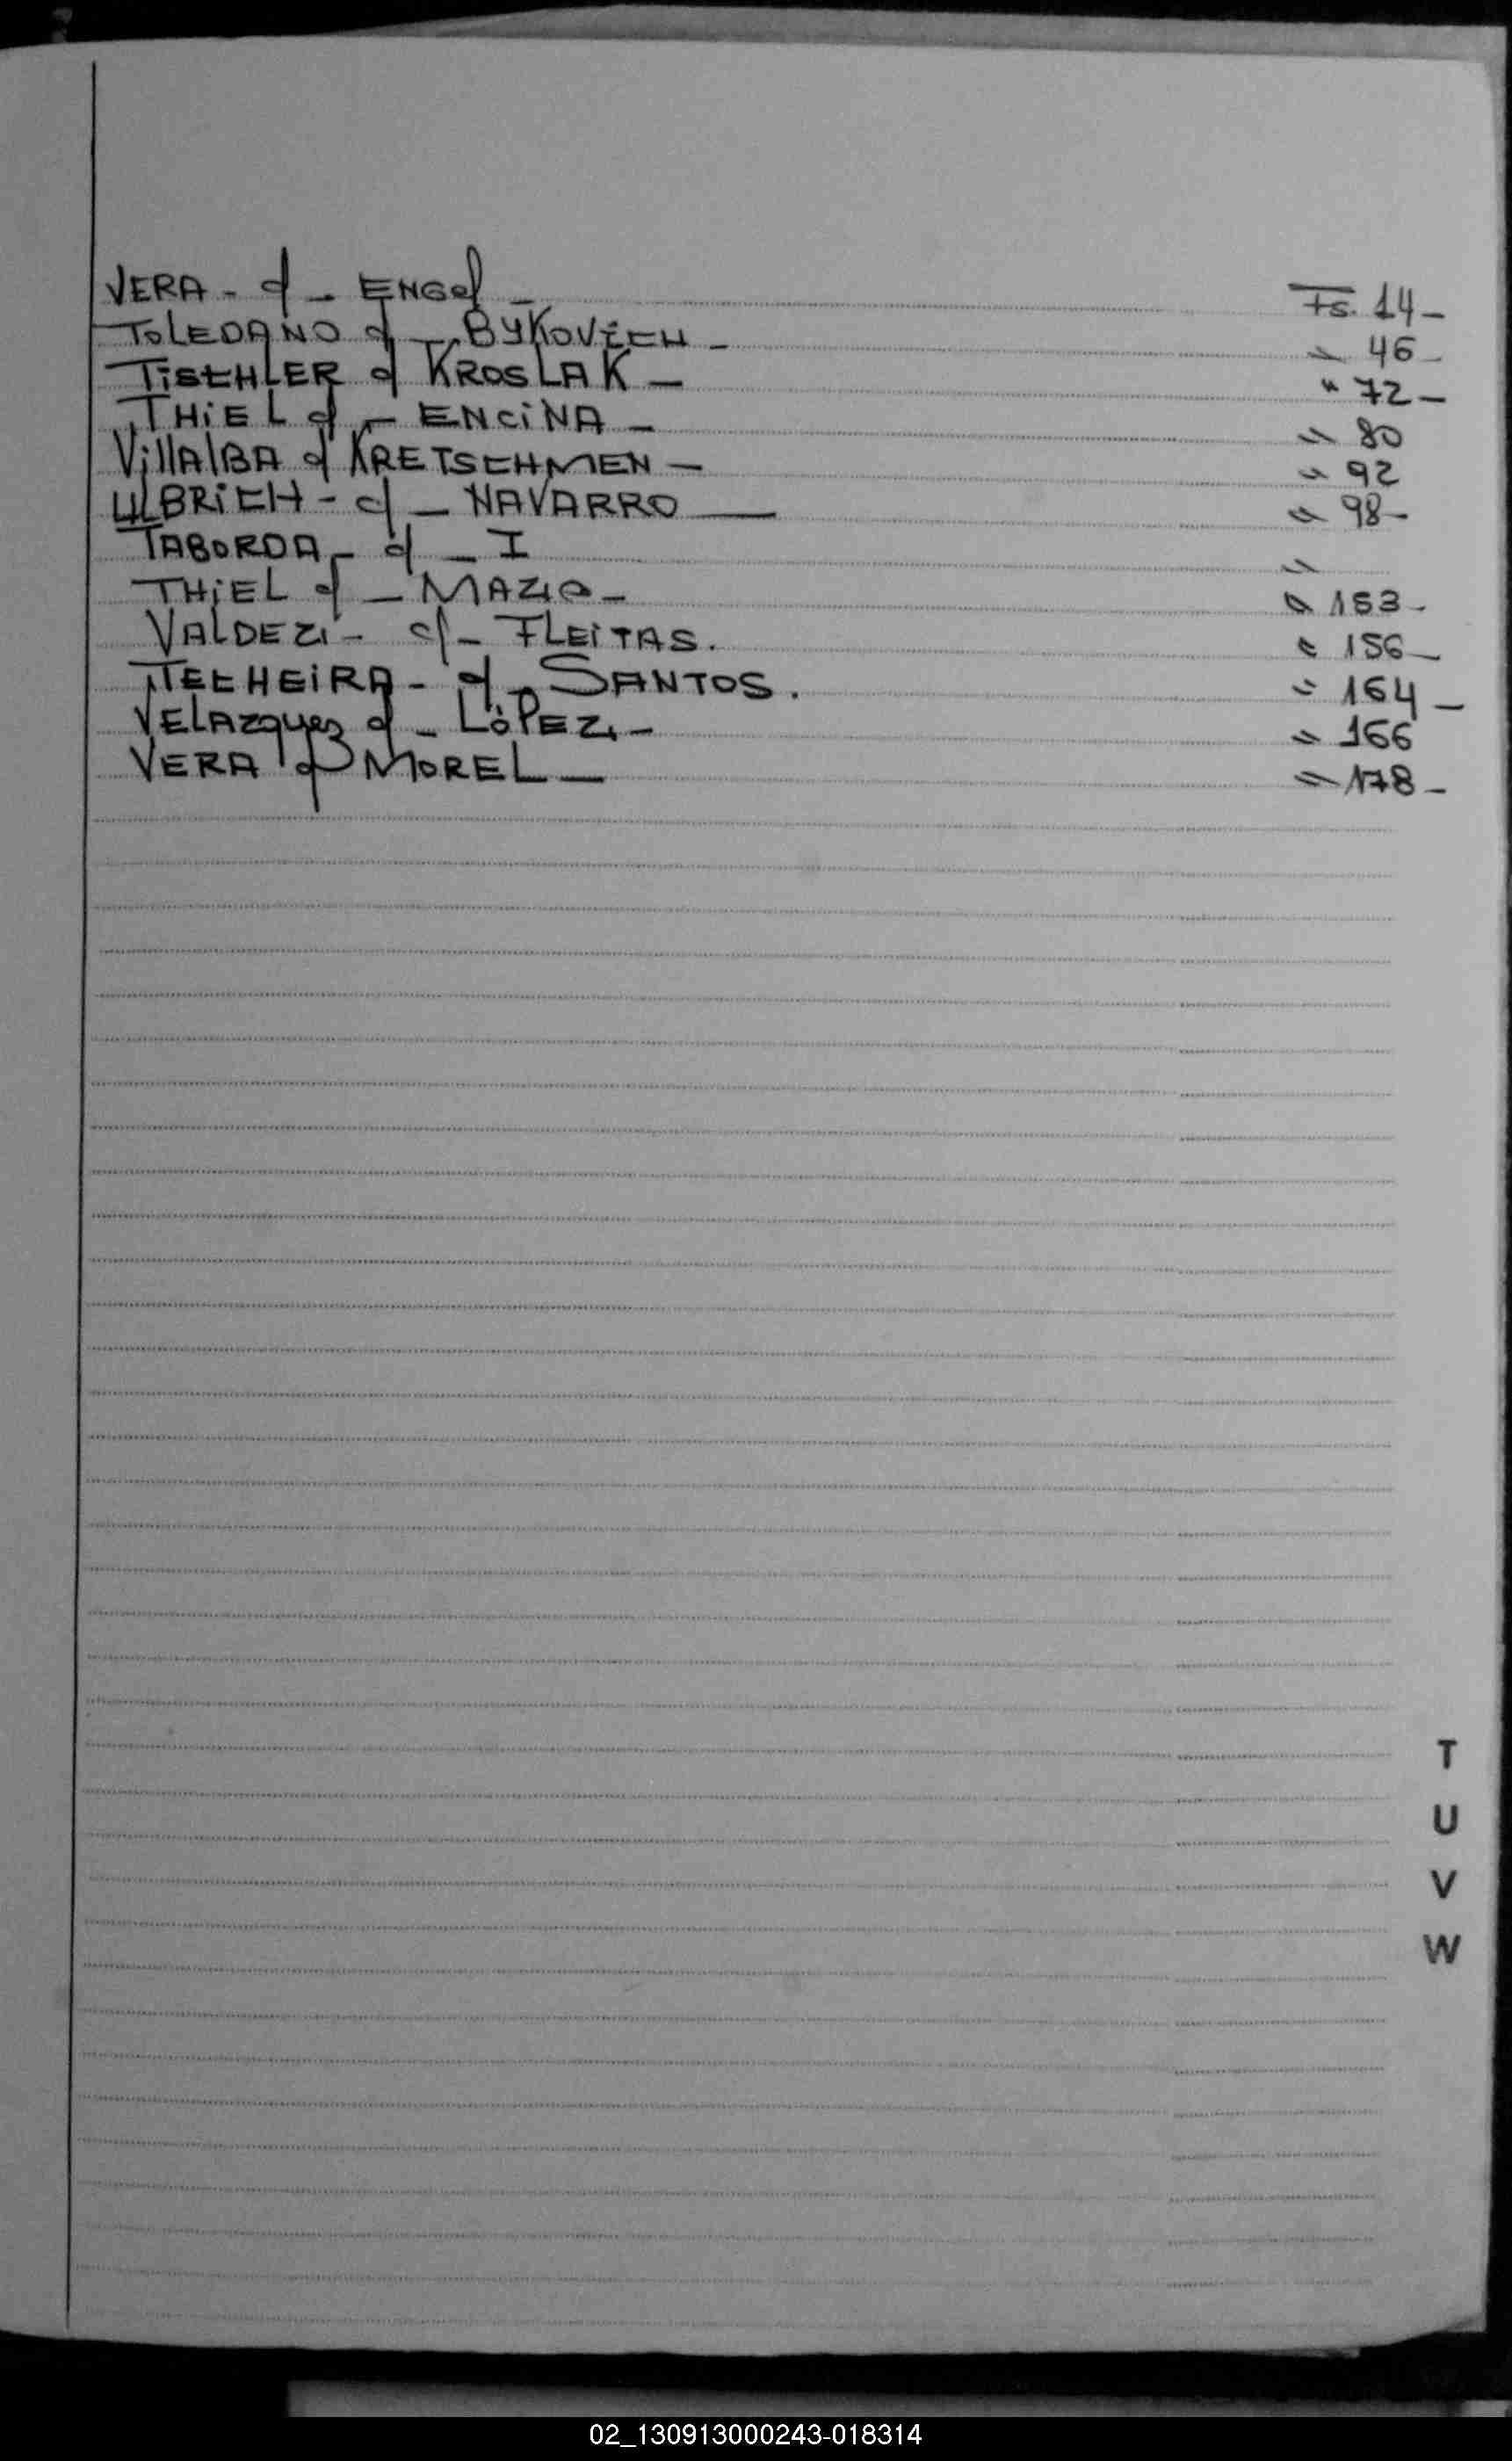 VERA - c/ - ENGEL - Fs. 14 -
TOLEDANO c/ - BYKOVICH - " 46 -
TISCHLER c/ KROSLAK - " 72 -
THIEL c/ - ENCINA - " 80
VillAlBA c/ KRETSCHMEN - " 92
ULBRICH - c/ - NAVARRO - " 98 -
TABORDA - c/ - I "
THIEL c/ - MAZIO - " 153 -
VALDEZ - c/ - FLEITAS. " 156 -
TECHEIRA - c/ - SANTOS. " 164 -
VELAZquez c/ - LÓPEZ - " 166
VERA c/ MOREL - " 178 -
T
U
V
W
02_130913000243-018314